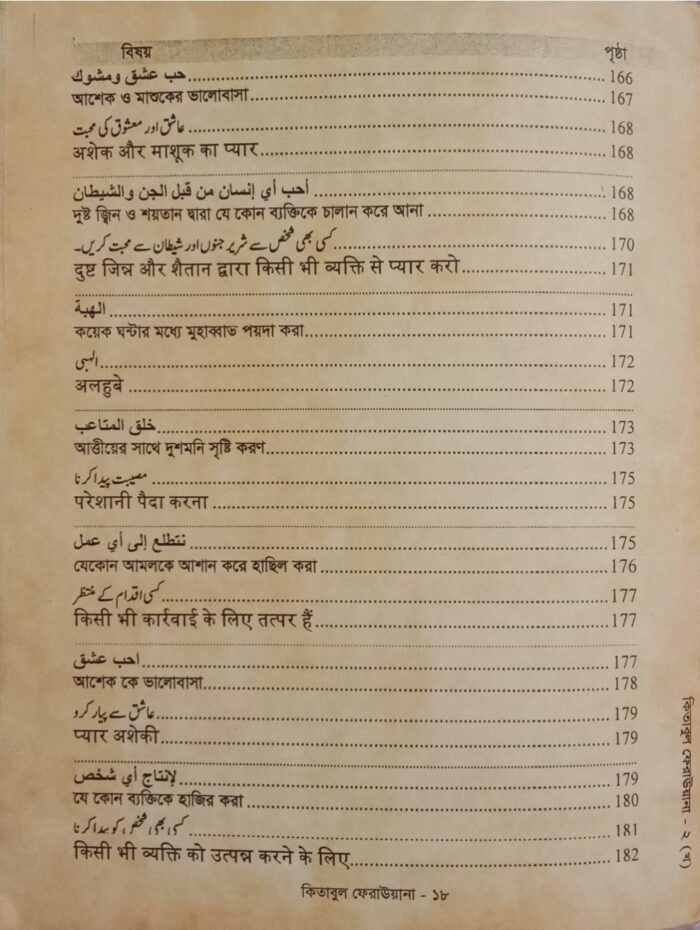 বিষয় পৃষ্ঠা
حب عشق ومشوك 166
আশেক ও মাশুকের ভালোবাসা 167
عاشق اور معشوق کی محبت 168
अशेक और माशूक का प्यार 168
أحب أي إنسان من قبل الجن والشيطان 168
দুষ্ট জ্বিন ও শয়তান দ্বারা যে কোন ব্যক্তিকে চালান করে আনা 168
کسی بھی شخص سے شریر جنوں اور شیطان سے محبت کریں۔ 170
दुष्ट जिन्न और शैतान द्वारा किसी भी व्यक्ति से प्यार करो 171
الهبة 171
কয়েক ঘন্টার মধ্যে মুহাব্বাত পয়দা করা 171
الہبی 172
অলহুবে 172
خلق المتاعب 173
আত্তীয়ের সাথে দুশমনি সৃষ্টি করণ 173
مصیبت پیدا کرنا 175
परेशानी पैदा करना 175
نتطلع إلى أي عمل 175
যেকোন আমলকে আশান করে হাছিল করা 176
کسی اقدام کے منتظر 177
किसी भी कार्रवाई के लिए तत्पर हैं 177
احب عشق 177
আশেক কে ভালোবাসা 178
عاشق سے پیار کرو 179
प्यार अशेकी 179
لإنتاج أي شخص 179
যে কোন ব্যক্তিকে হাজির করা 180
کسی بھی شخص کو پیدا کرنا 181
किसी भी व्यक्ति को उत्पन्न करने के लिए 182
কিতাবুল ফেরাউয়ানা - ১৮
কিতাবুল ফেরাউয়ানা - ২ (খ)